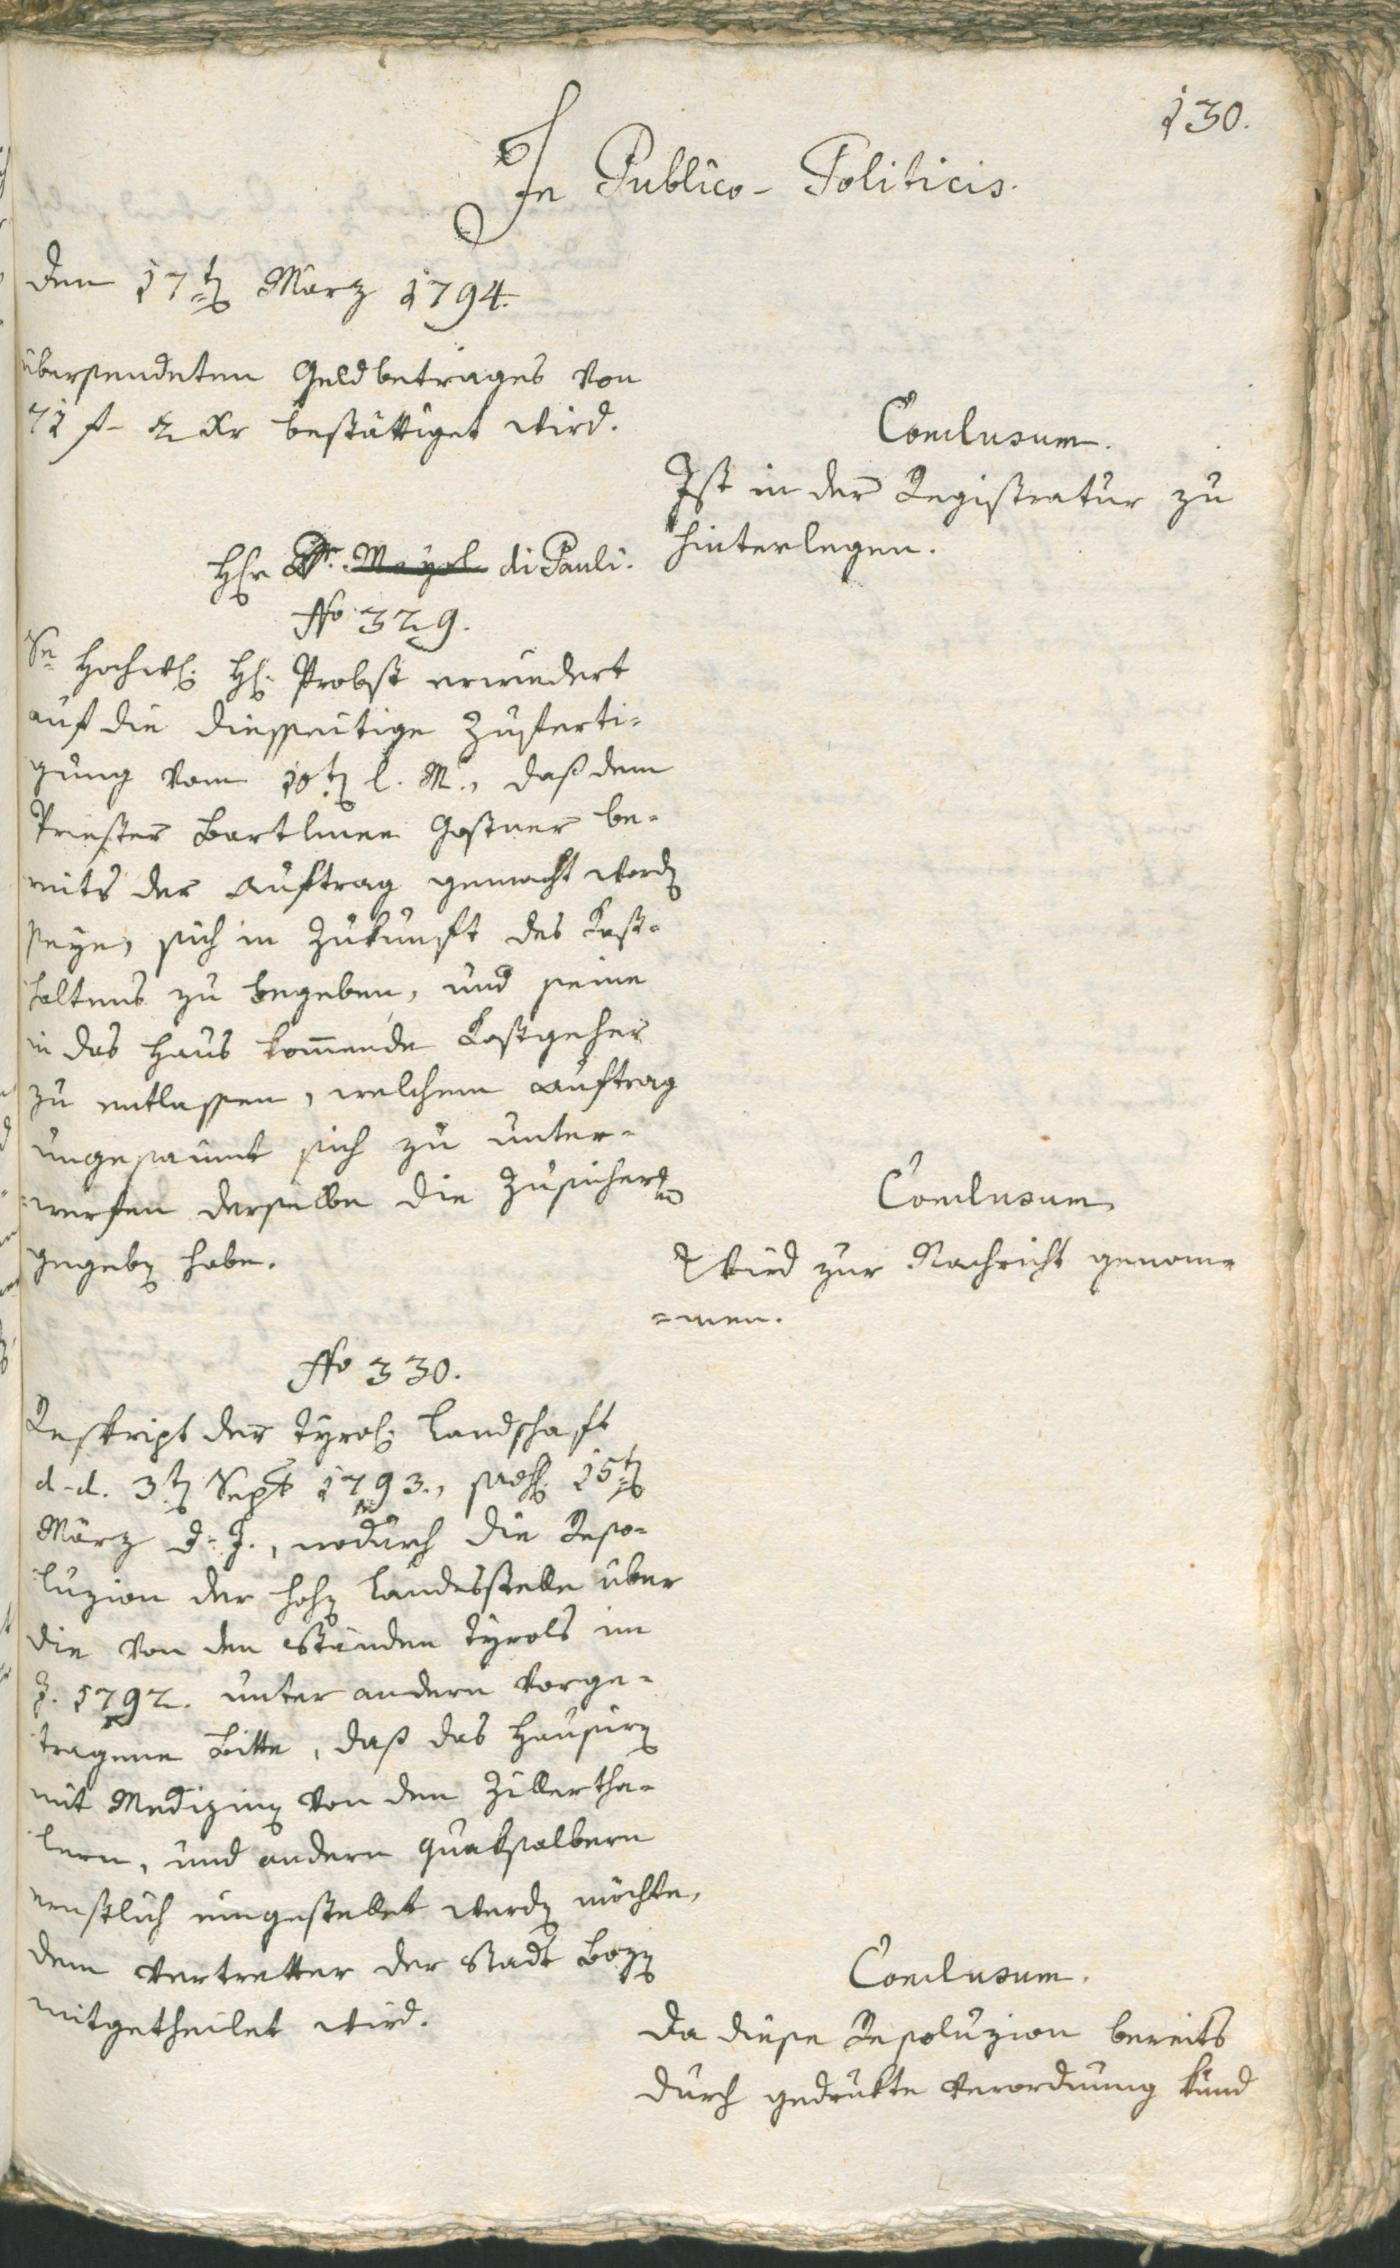 130.
In Publico-Politicis.
den 17ten März 1794.
übersendeten Geldbetrages von
71 f- 2 Xr bestättiget wird.
Conclusum.
Ist in der Registratur zu
hinterlegen.
Hr Dr. Mayrl di Pauli.
No 329.
Se Hochw. H. Probst erwiedert
auf die diesseitige Zuferti-
gung vom 10ten l. M., daß dem
Priester Bartlmee Gostner be-
reits der Auftrag gemacht worden
seye, sich in Zukunft des Kost-
haltens zu begeben, und seine
in das Haus kommende Kostgeher
zu entlassen, welchem Auftrag
ungesäumt sich zu unter-
=werfen derselbe die Zusicherung
gegeben habe.
Conclusum
Wird zur Nachricht genom-
=men.
No 330.
Reskript der Tyrol. Landschaft
d-d. 3ten Sept 1793., 15ten
März d. J., wodurch die Reso-
luzion der hohen Landesstelle über
die von den Ständen Tyrols im
J. 1792. unter andern vorge-
tragene Bitte, daß das Hausiren
mit Medizinen von den Zillertha-
lern, und andern Quaksalbern
ernstlich eingestellet werden möchte,
dem Vertretter der Stadt Bozen
mitgetheilet wird.
Conclusum.
Da diese Resoluzion bereits
durch gedrukte Verordnung kund